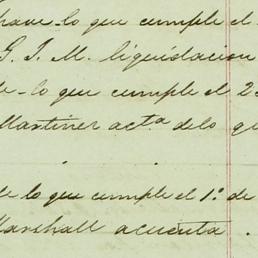 have lo que cumple el
G. I. M. liquidacion
de lo que cumple el 2
Martinez act.a de lo q
de lo que cumple el 1º de
Marshall acuenta.